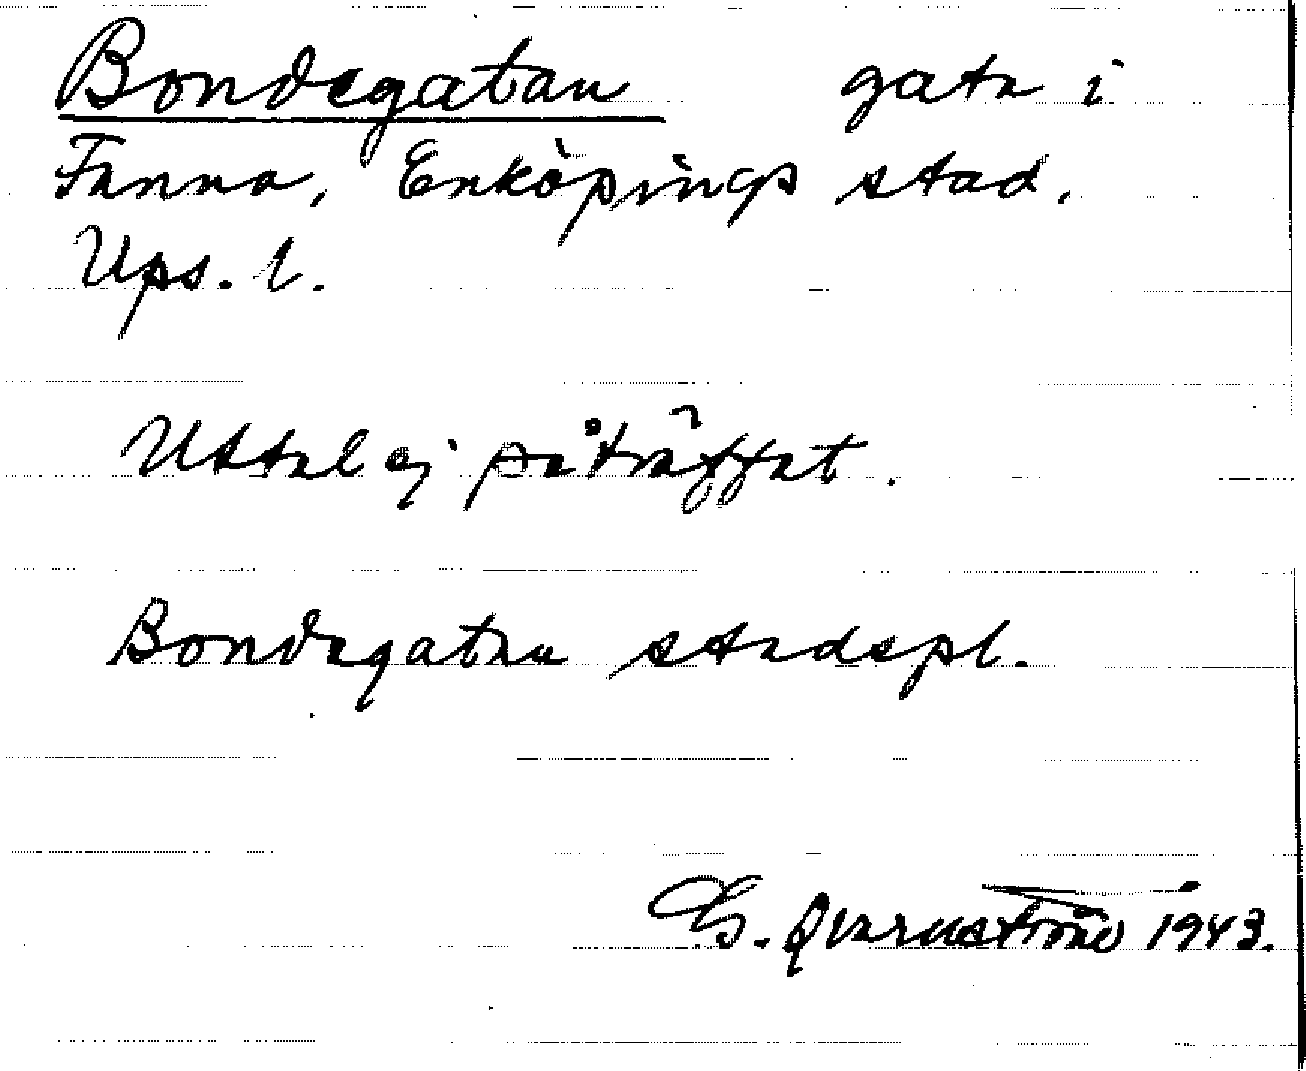 Bondegatan gata i
Fanna, Enköpings stad.
Ups. l.
Uttal ej påträffat.
Bondegatan stadspl.
G. Qvarnström 1943.